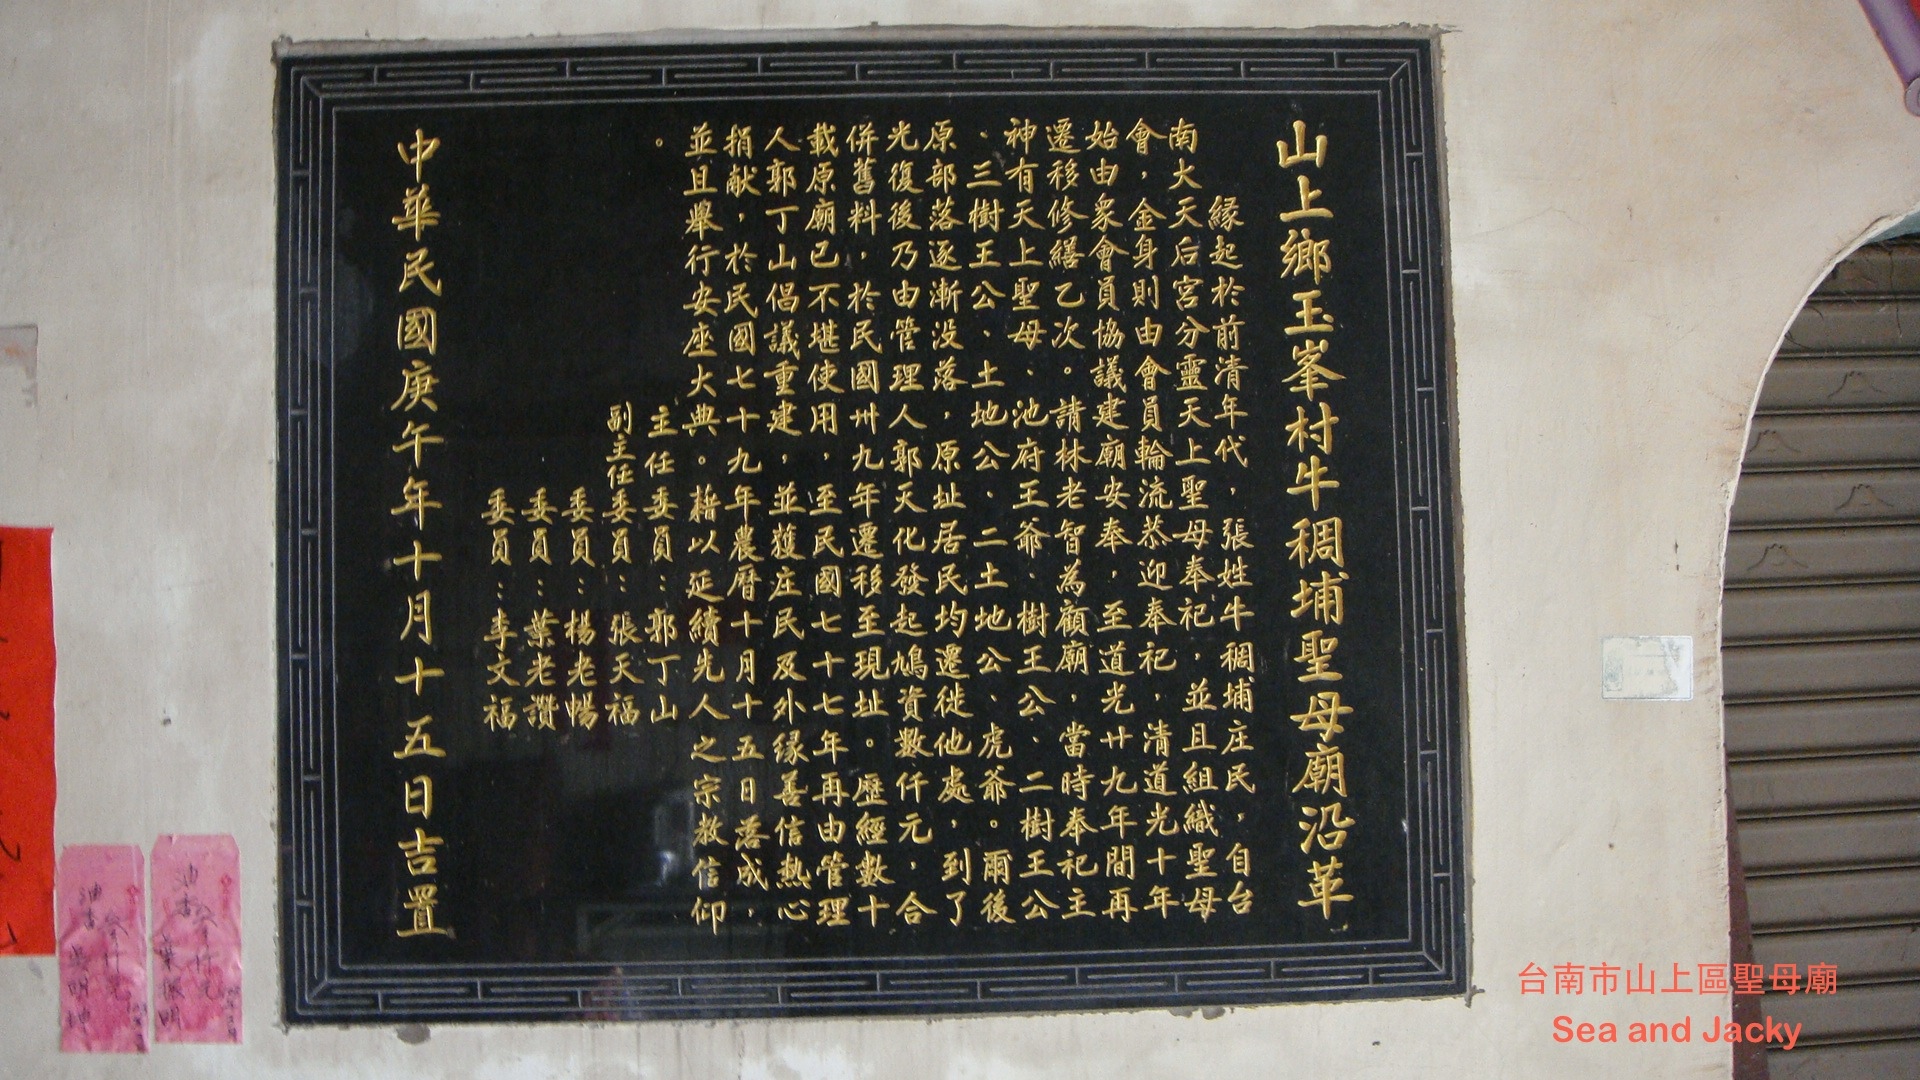 山上鄉玉峯村牛稠埔聖母廟沿革
緣起於前清年代，張姓牛稠埔庄民，自台
南大天后宮分靈天上聖母奉祀，並且組織聖母
會，金身則由會員輪流恭迎奉祀，清道光十年
始由衆會員協議建廟安奉，至道光廿九年間再
遷移修繕乙次。請林老智為顧廟，當時奉祀主
神有天上聖母、池府王爺、樹王公、二樹王公
、三樹王公、土地公、二土地公、虎爺。爾後
原部落逐漸没落，原址居民均遷徙他處，到了
光復後乃由管理人郭天化發起鳩資數仟元，合
併舊料，於民國卅九年遷移至現址。歷經數十
載原廟已不堪使用，至民國七十七年再由管理
人郭丁山倡議重建，並獲庄民及外緣善信熱心
捐献，於民國七十九年農曆十月十五日落成，
並且舉行安座大典。藉以延續先人之宗教信仰
。
主任委員：郭丁山
副主任委員：張天福
委員：楊老暢
委員：葉老讚
委員：李文福
中華民國庚午年十月十五日吉置
油香
吳明坤
油香
葉振明
台南市山上區聖母廟
Sea and Jacky